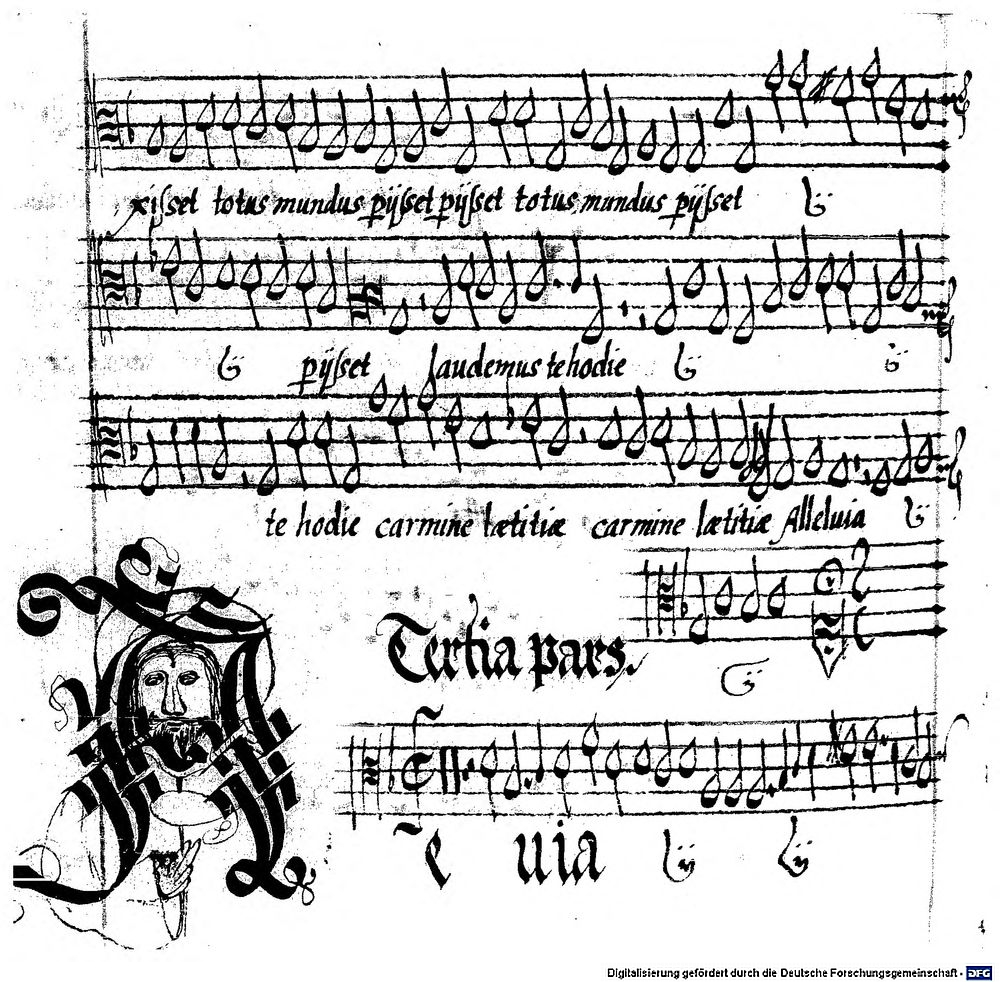 xisset totus mundus pijsset pijsset totus mundus pijsset ij
ij pijsset laudemus te hodie ij ij
te hodie carmine lætitiæ carmine lætitiæ Alleluia ij
Tertia pars.
ij
uia ij ij
Digitalisierung gefördert durch die Deutsche Forschungsgemeinschaft - DFG